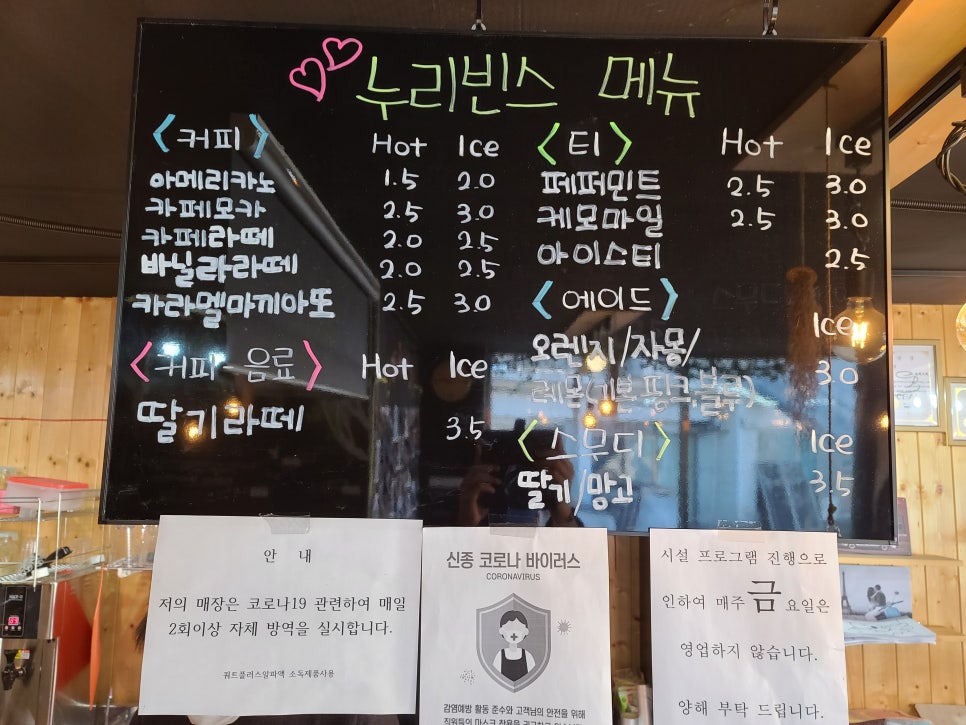 누리빈스 메뉴
<커피> Hot Ice
아메리카노 1.5 2.0
카페모카 2.5 3.0
카페라떼 2.0 2.5
바닐라라떼 2.0 2.5
카라멜마끼아또 2.5 3.0
<커피-음료> Hot Ice
딸기라떼 3.5
<티> Hot Ice
페퍼민트 2.5 3.0
케모마일 2.5 3.0
아이스티 2.5
<에이드> Ice
오렌지/자몽/
레몬(기본,핑크,블루) 3.0
<스무디> Ice
딸기/망고 3.5
안 내
저의 매장은 코로나19 관련하여 매일
2회이상 자체 방역을 실시합니다.
쿼드플러스알파액 소독제품사용
신종 코로나 바이러스
CORONAVIRUS
감염예방 활동 준수와 고객님의 안전을 위해
직원들의 마스크 착용을
시설 프로그램 진행으로
인하여 매주 금요일은
영업하지 않습니다.
양해 부탁 드립니다.